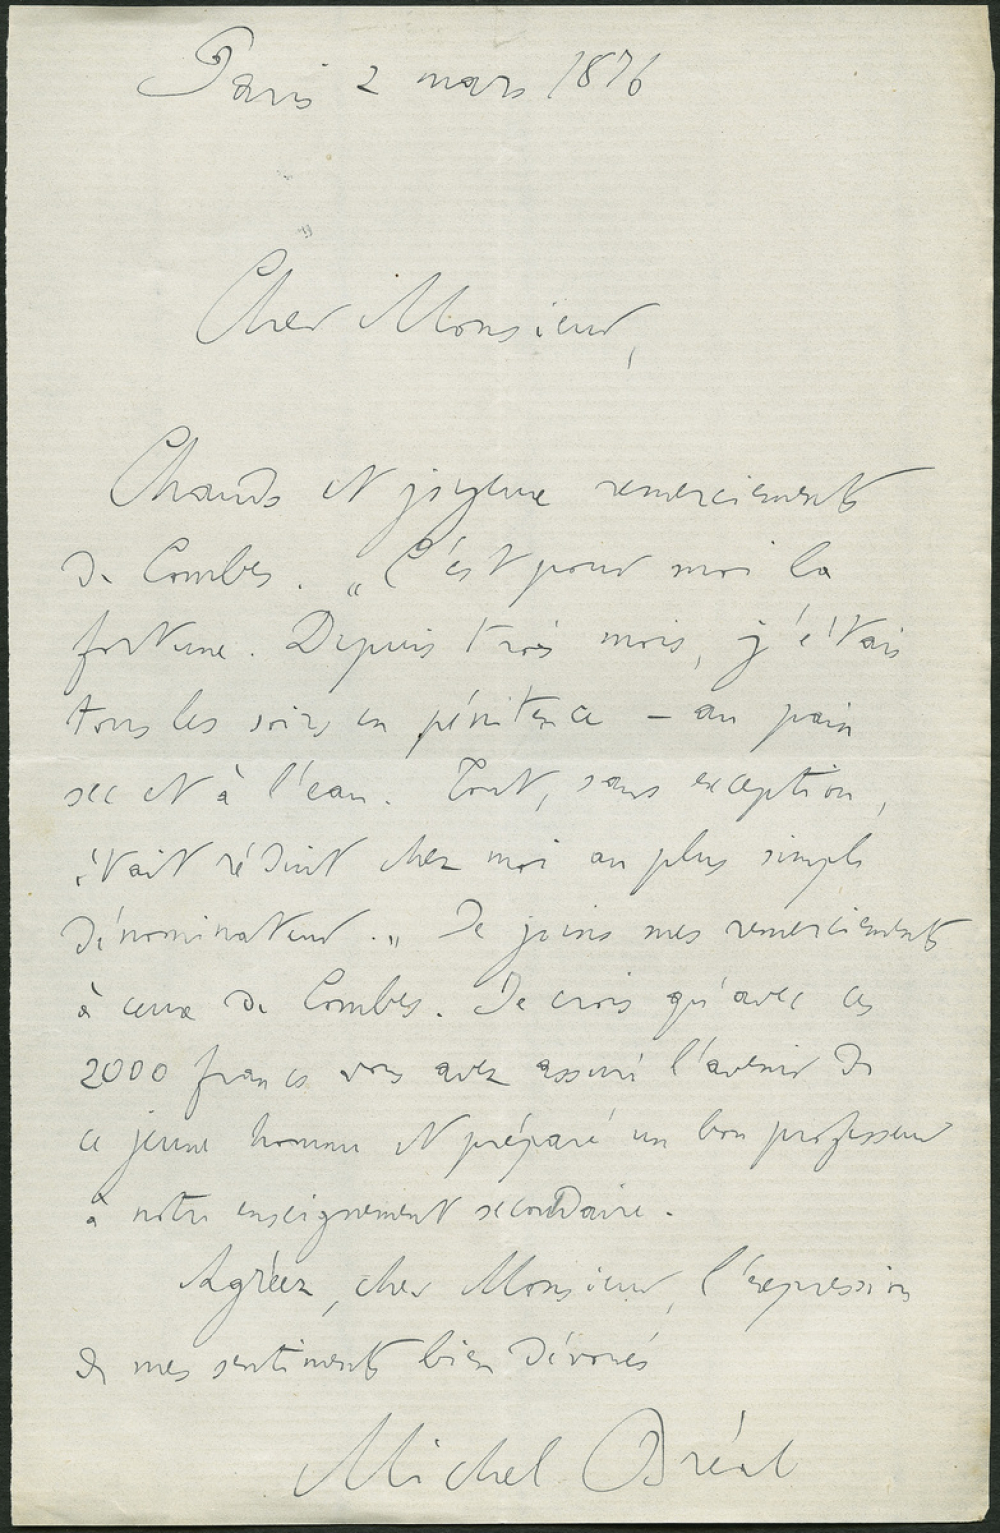 Paris 2 mars 1876
Cher Monsieur,
Chauds et joyeux remerciements
de Combes. „ C'est pour moi la
fortune. Depuis trois mois, j'étais
tous les soirs en pénitence – au pain
sec et à l'eau. Tout, sans exception,
était réduit chez moi au plus simple
dénominateur. „ Je joins mes remerciements
à ceux de Combes. Je crois qu'avec ces
2000 francs vous avez assuré l'avenir de
ce jeune homme et préparé un bon professeur
à notre enseignement secondaire.
Agréez, cher Monsieur, l'expression
de mes sentiments bien dévoués
Michel Bréal